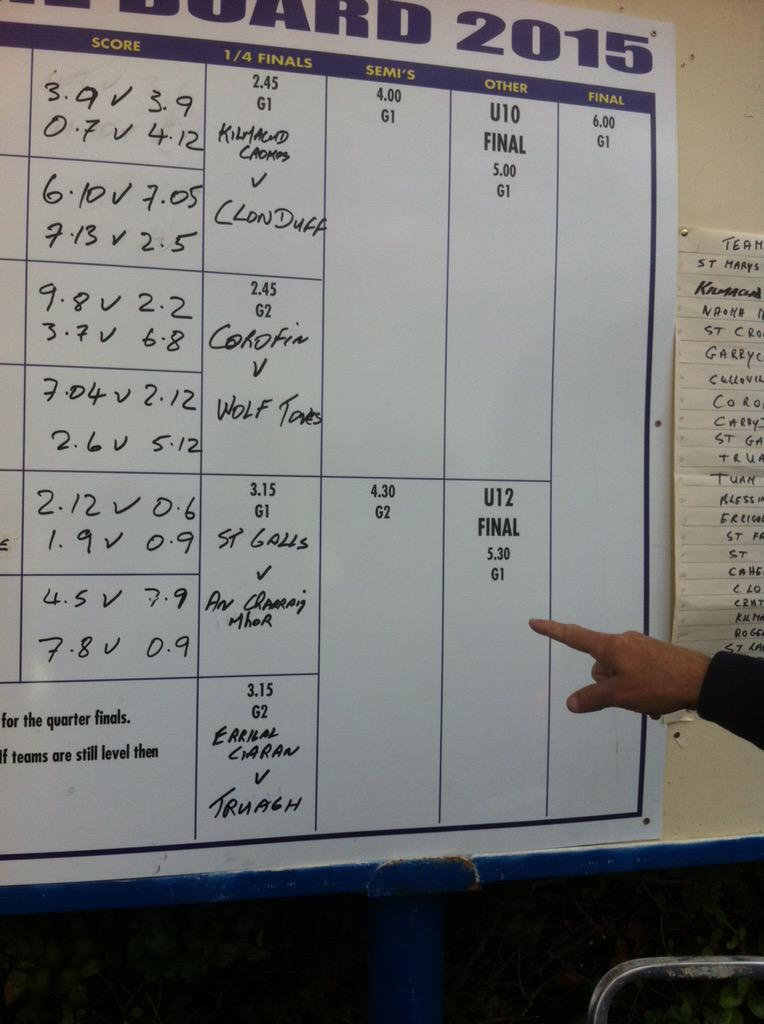 BOARD 2015
SCORE
1/4 FINALS
SEMI'S
OTHER
FINAL
3.9 v 3.9
0.7 v 4.12
6.10 v 7.05
7.13 v 2.5
9.8 v 2.2
3.7 v 6.8
7.04 v 2.12
2.6 v 5.12
2.12 v 0.6
1.9 v 0.9
4.5 v 7.9
7.8 v 0.9
for the quarter finals.
If teams are still level then
2.45
G1
KILMACUD
CROKES
v
CLONDUFF
2.45
G2
COROFIN
v
WOLF TONES
3.15
G1
ST GALLS
v
AN CHARRAIG
MHOR
3.15
G2
ERRIGAL
CIARAN
v
TRUAGH
4.00
G1
4.30
G2
U10
FINAL
5.00
G1
U12
FINAL
5.30
G1
6.00
G1
TEAM
ST MARYS
KILMACUD
ST CRO
GARRYC
CULLOVIL
CORO
ST GA
TRUA
TUAM
BLESSIN
ERRIGAL
ST
CAHE
CLO
CRAT
KILMA
ROGE